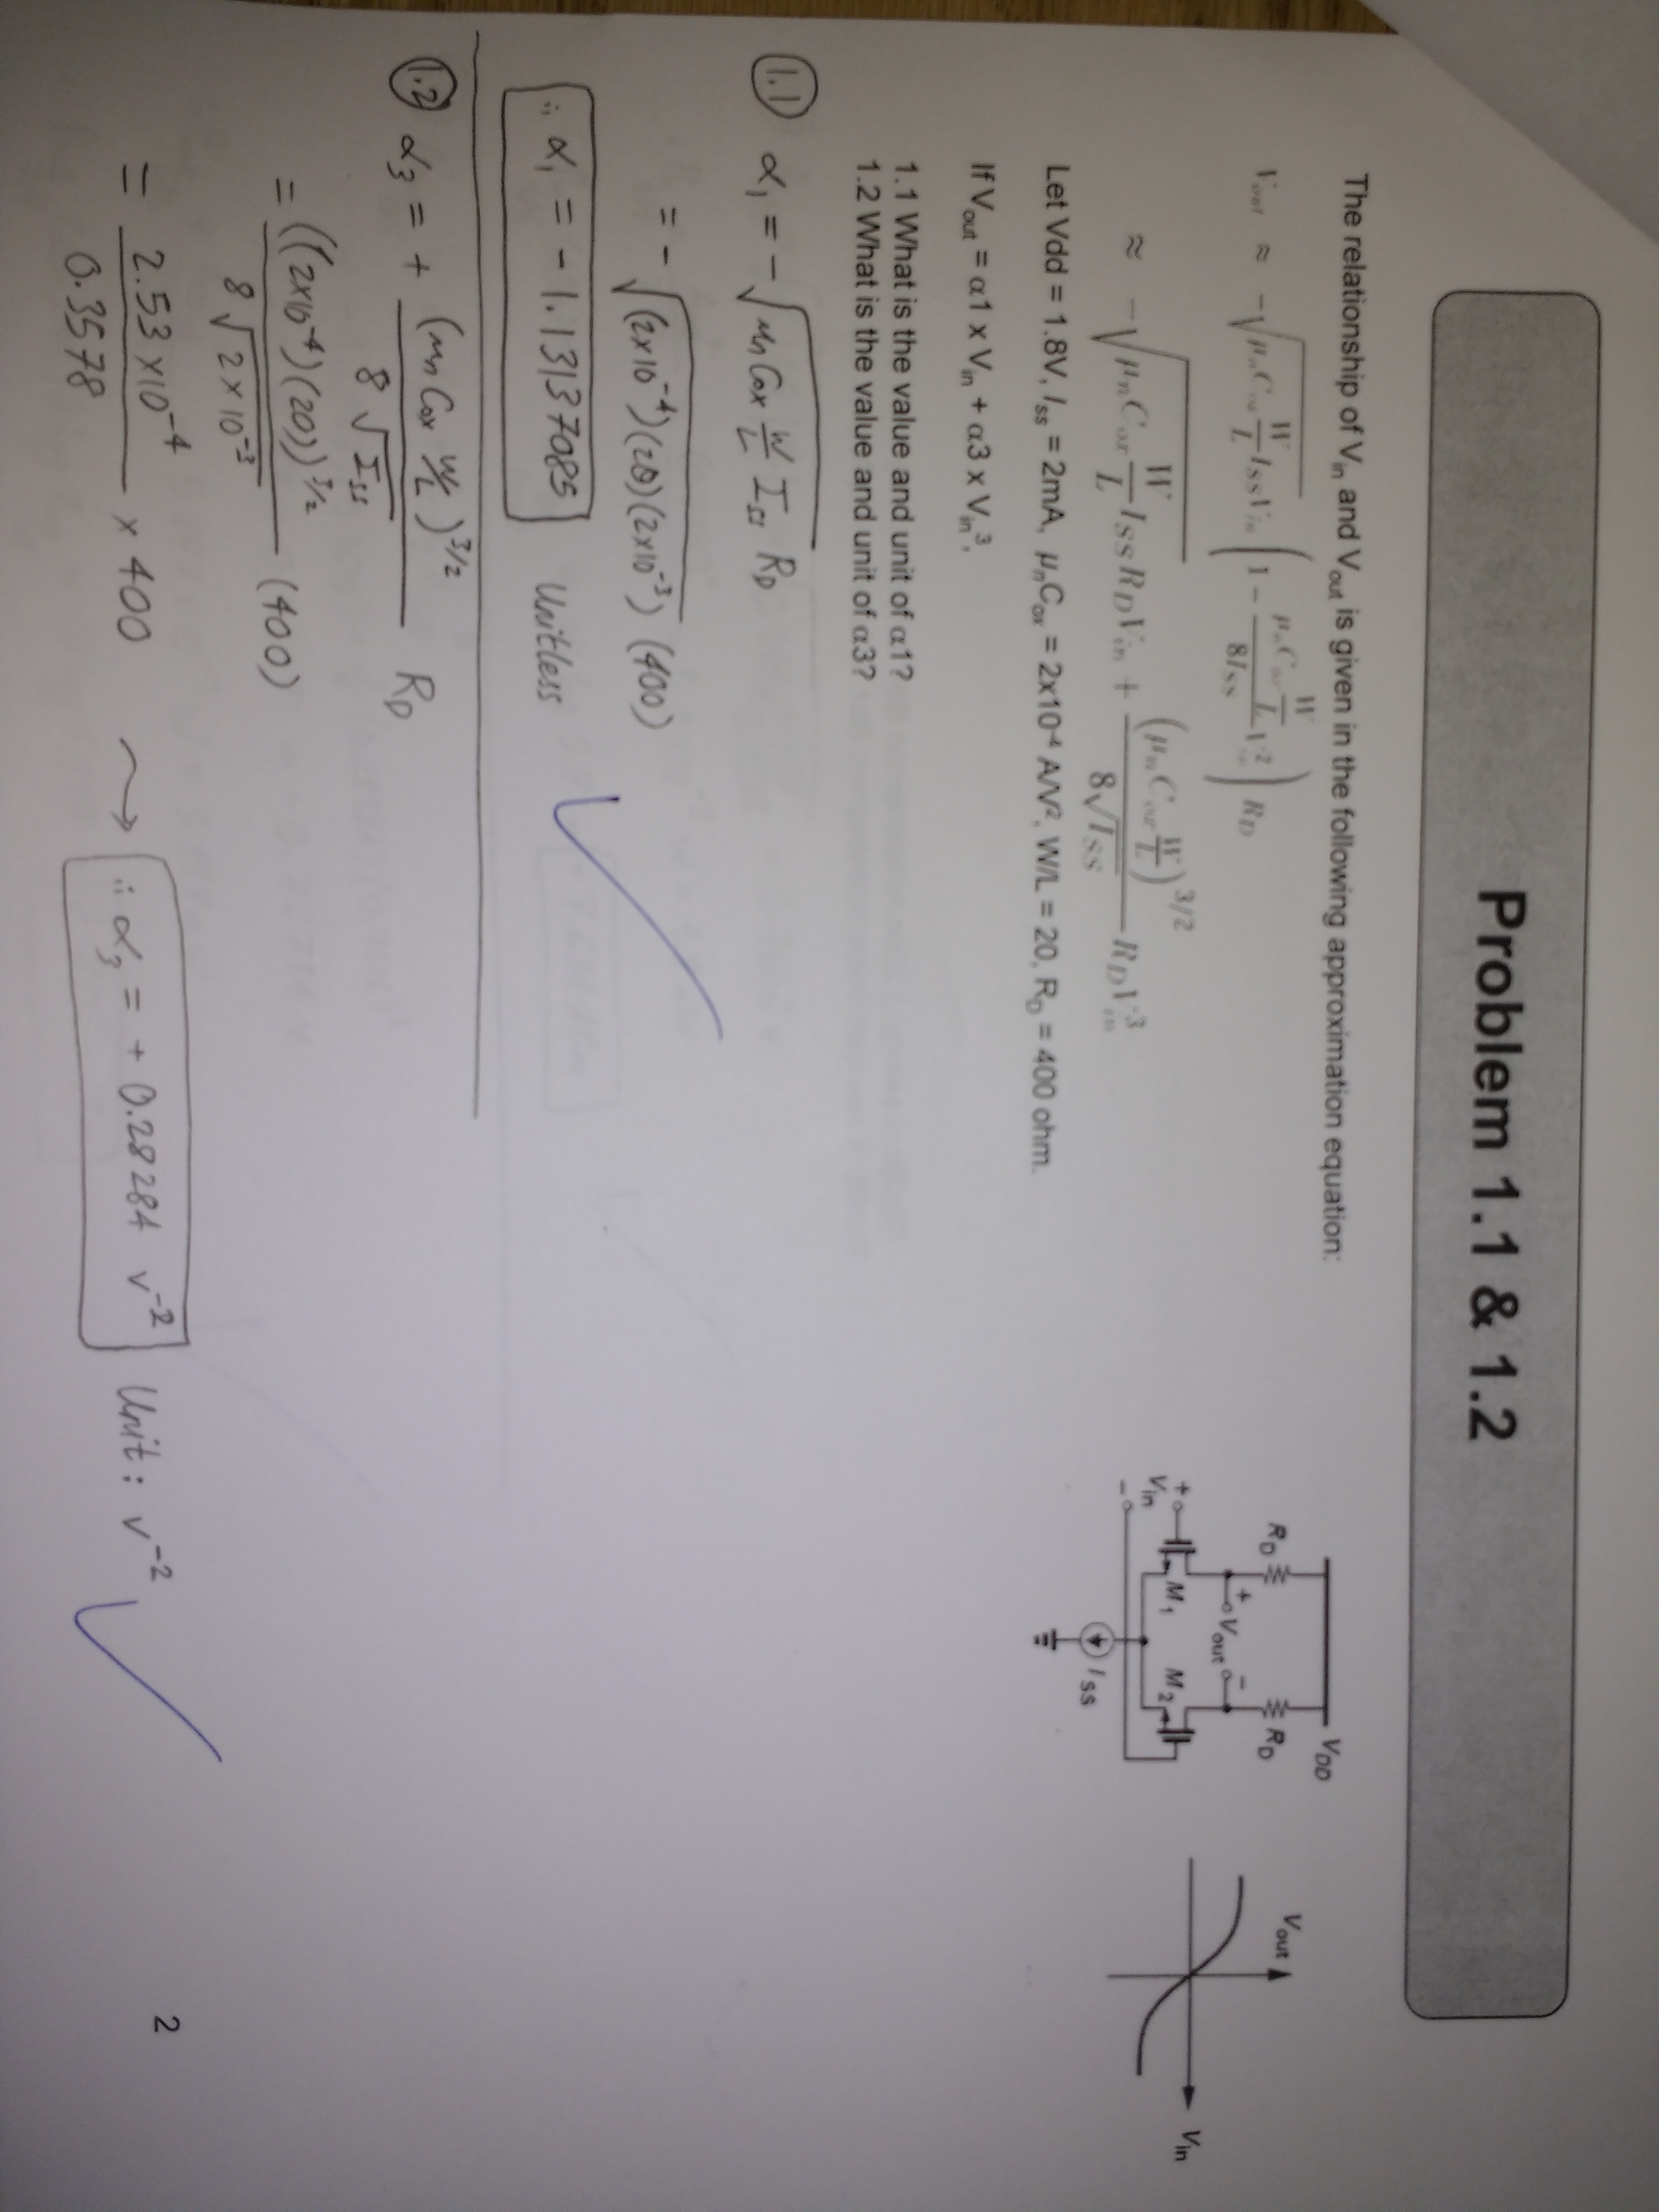 Problem 1.1 & 1.2
The relationship of Vin and Vout is given in the following approximation equation:
Vout ≈ -√(μnCox W/L Iss) Vin (1 - μnCox W/L / 8Iss Vin²) RD
≈ -√(μnCox W/L Iss) RD Vin + (μnCox W/L)^3/2 / 8√Iss RD Vin³
Let Vdd = 1.8V, Iss = 2mA, μnCox = 2x10⁻⁴ A/V², W/L = 20, RD = 400 ohm.
If Vout = α1 x Vin + α3 x Vin³,
1.1 What is the value and unit of α1?
1.2 What is the value and unit of α3?
VDD
RD
RD
+ Vout -
M1
M2
+
Vin
-
ISS
Vout
Vin
1.1 α1 = - √(μnCox W/L Iss) RD
= - √((2x10⁻⁴)(20)(2x10⁻³)) (400)
∴ α1 = - 1.13137085 Unitless
1.2 α3 = + (μnCox W/L)^3/2 / 8√Iss RD
= ((2x10⁻⁴)(20))^3/2 / 8√(2x10⁻³) (400)
= 2.53 x10⁻⁴ / 0.3578 x 400 → ∴ α3 = + 0.28284 V⁻² Unit: V⁻²
2